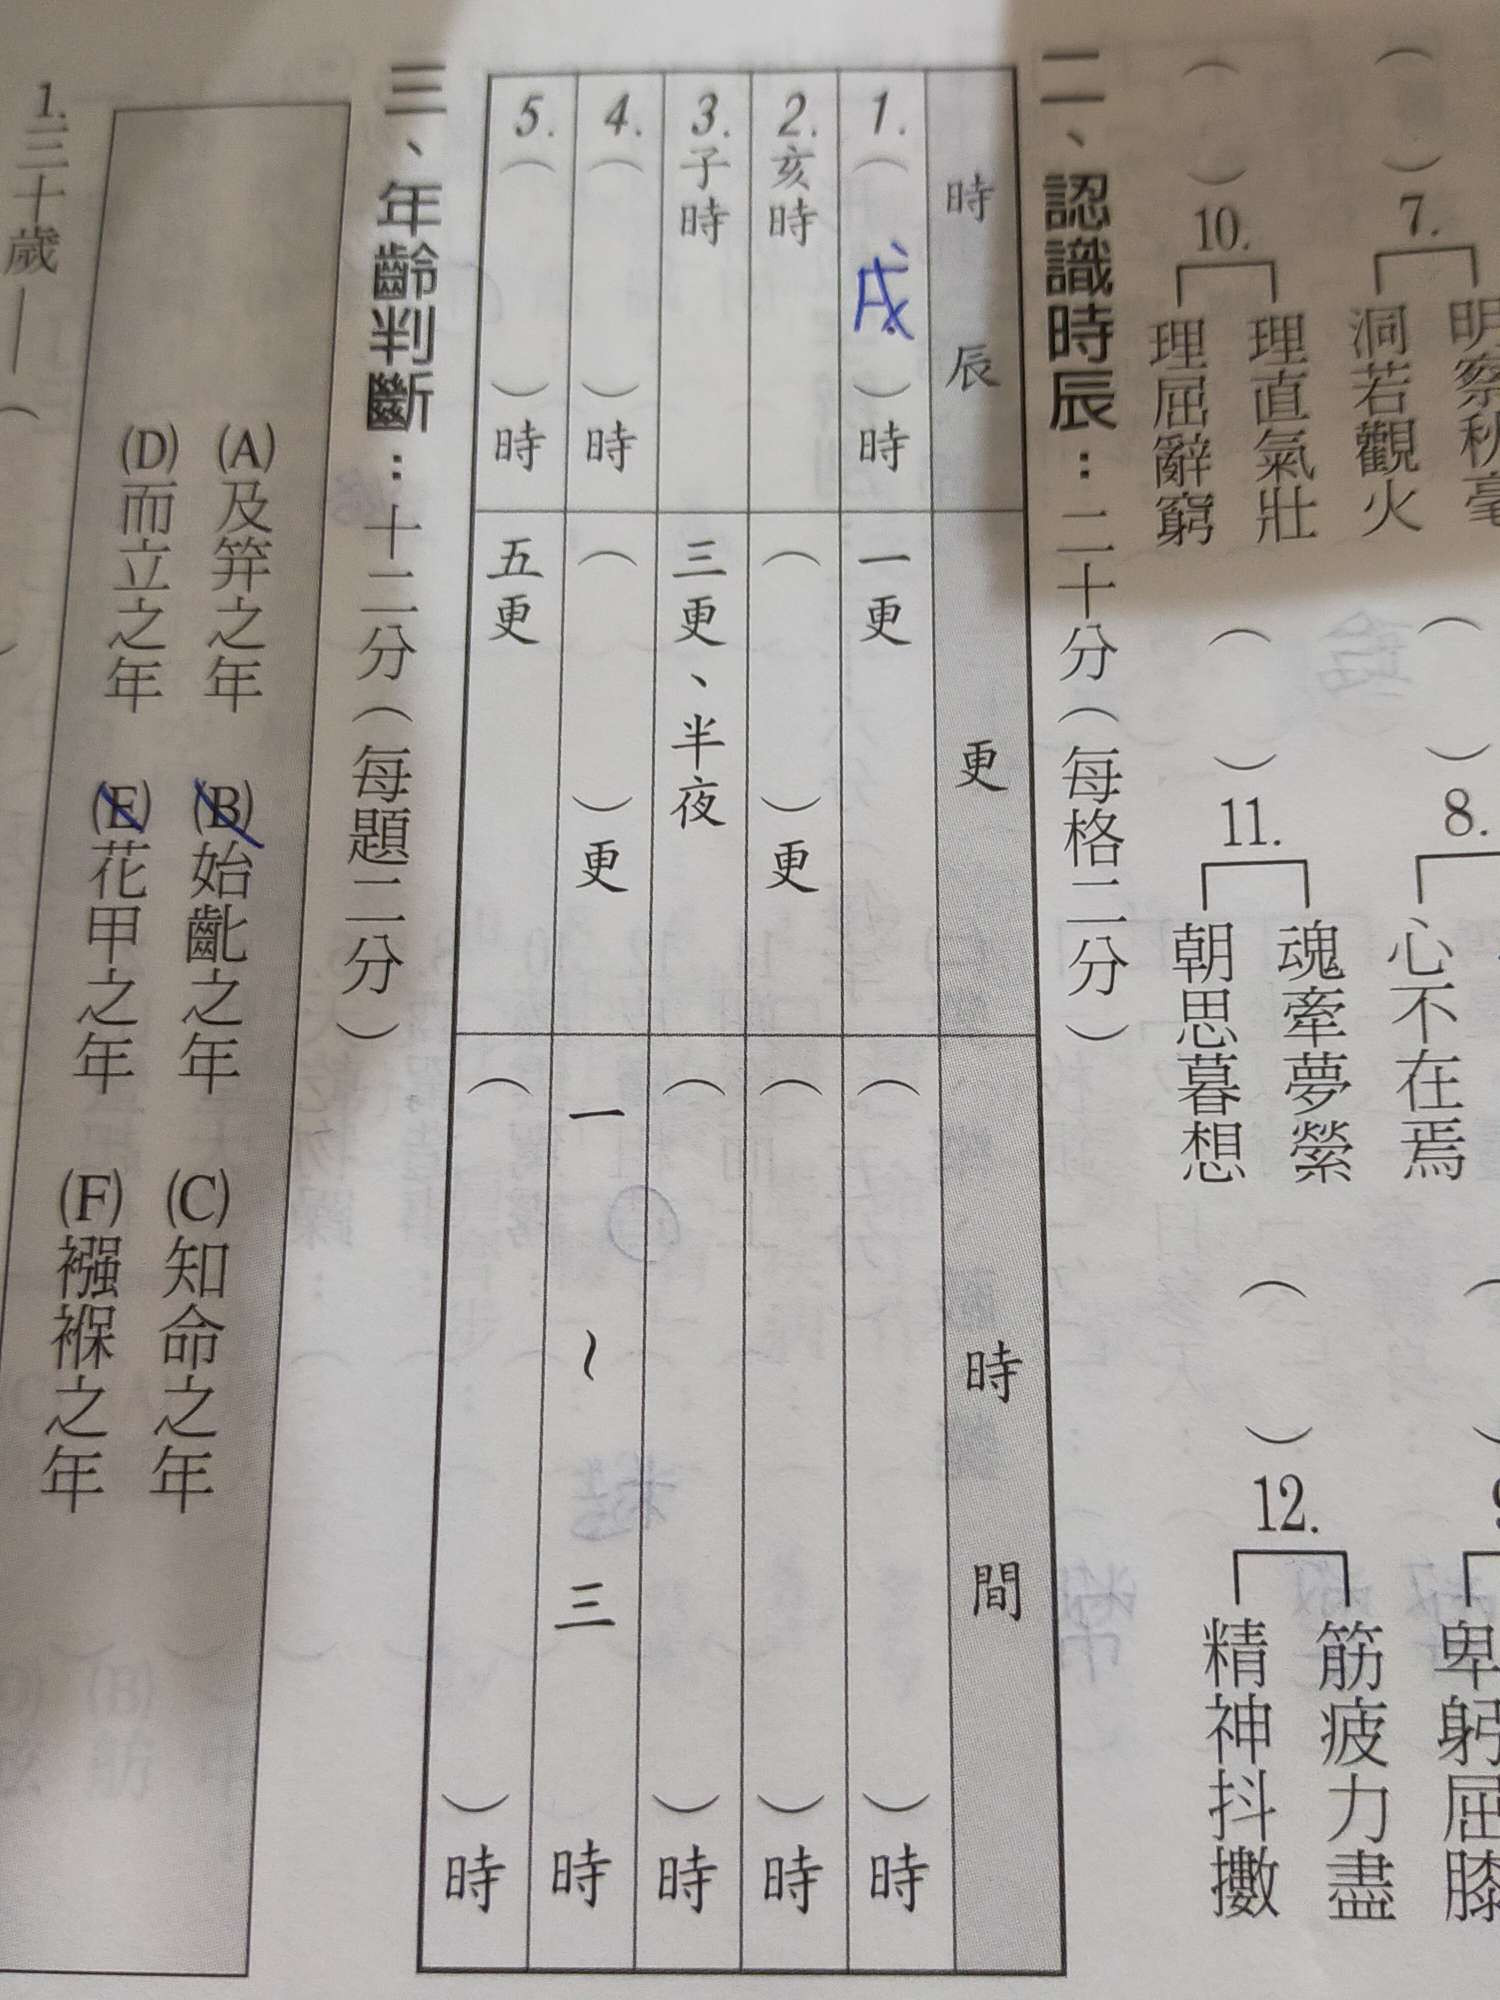 明察秋毫
7.
洞若觀火
（　）
8.
心不在焉
（　）
卑躬屈膝
（　）
10.
理直氣壯
理屈辭窮
（　）
11.
魂牽夢縈
朝思暮想
（　）
12.
筋疲力盡
精神抖擻
二、認識時辰：二十分（每格二分）
時辰
更
時間
1.（戌）時
一更
（　）時
2.亥時
（　）更
（　）時
3.子時
三更、半夜
（　）時
4.（　）時
（　）更
一～三時
5.（　）時
五更
（　）時
三、年齡判斷：十二分（每題二分）
(A)及笄之年
(B)始齔之年
(C)知命之年
(D)而立之年
(E)花甲之年
(F)襁褓之年
1.三十歲—（　）